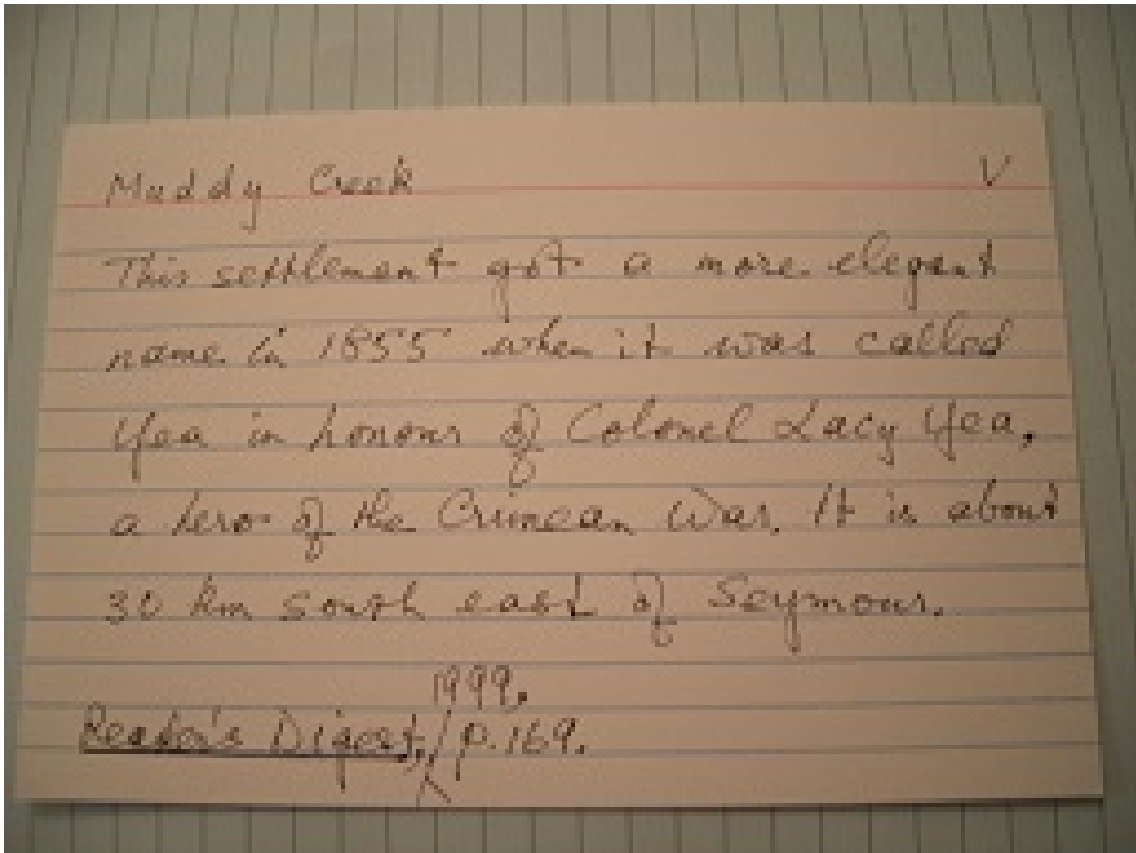 Muddy Creek V
This settlement got a more elegant
name in 1855 when it was called
Yea in honour of Colonel Lacy Yea,
a hero of the Crimean War. It is about
30 km south east of Seymour.
1999.
Reader's Digest, p.169.